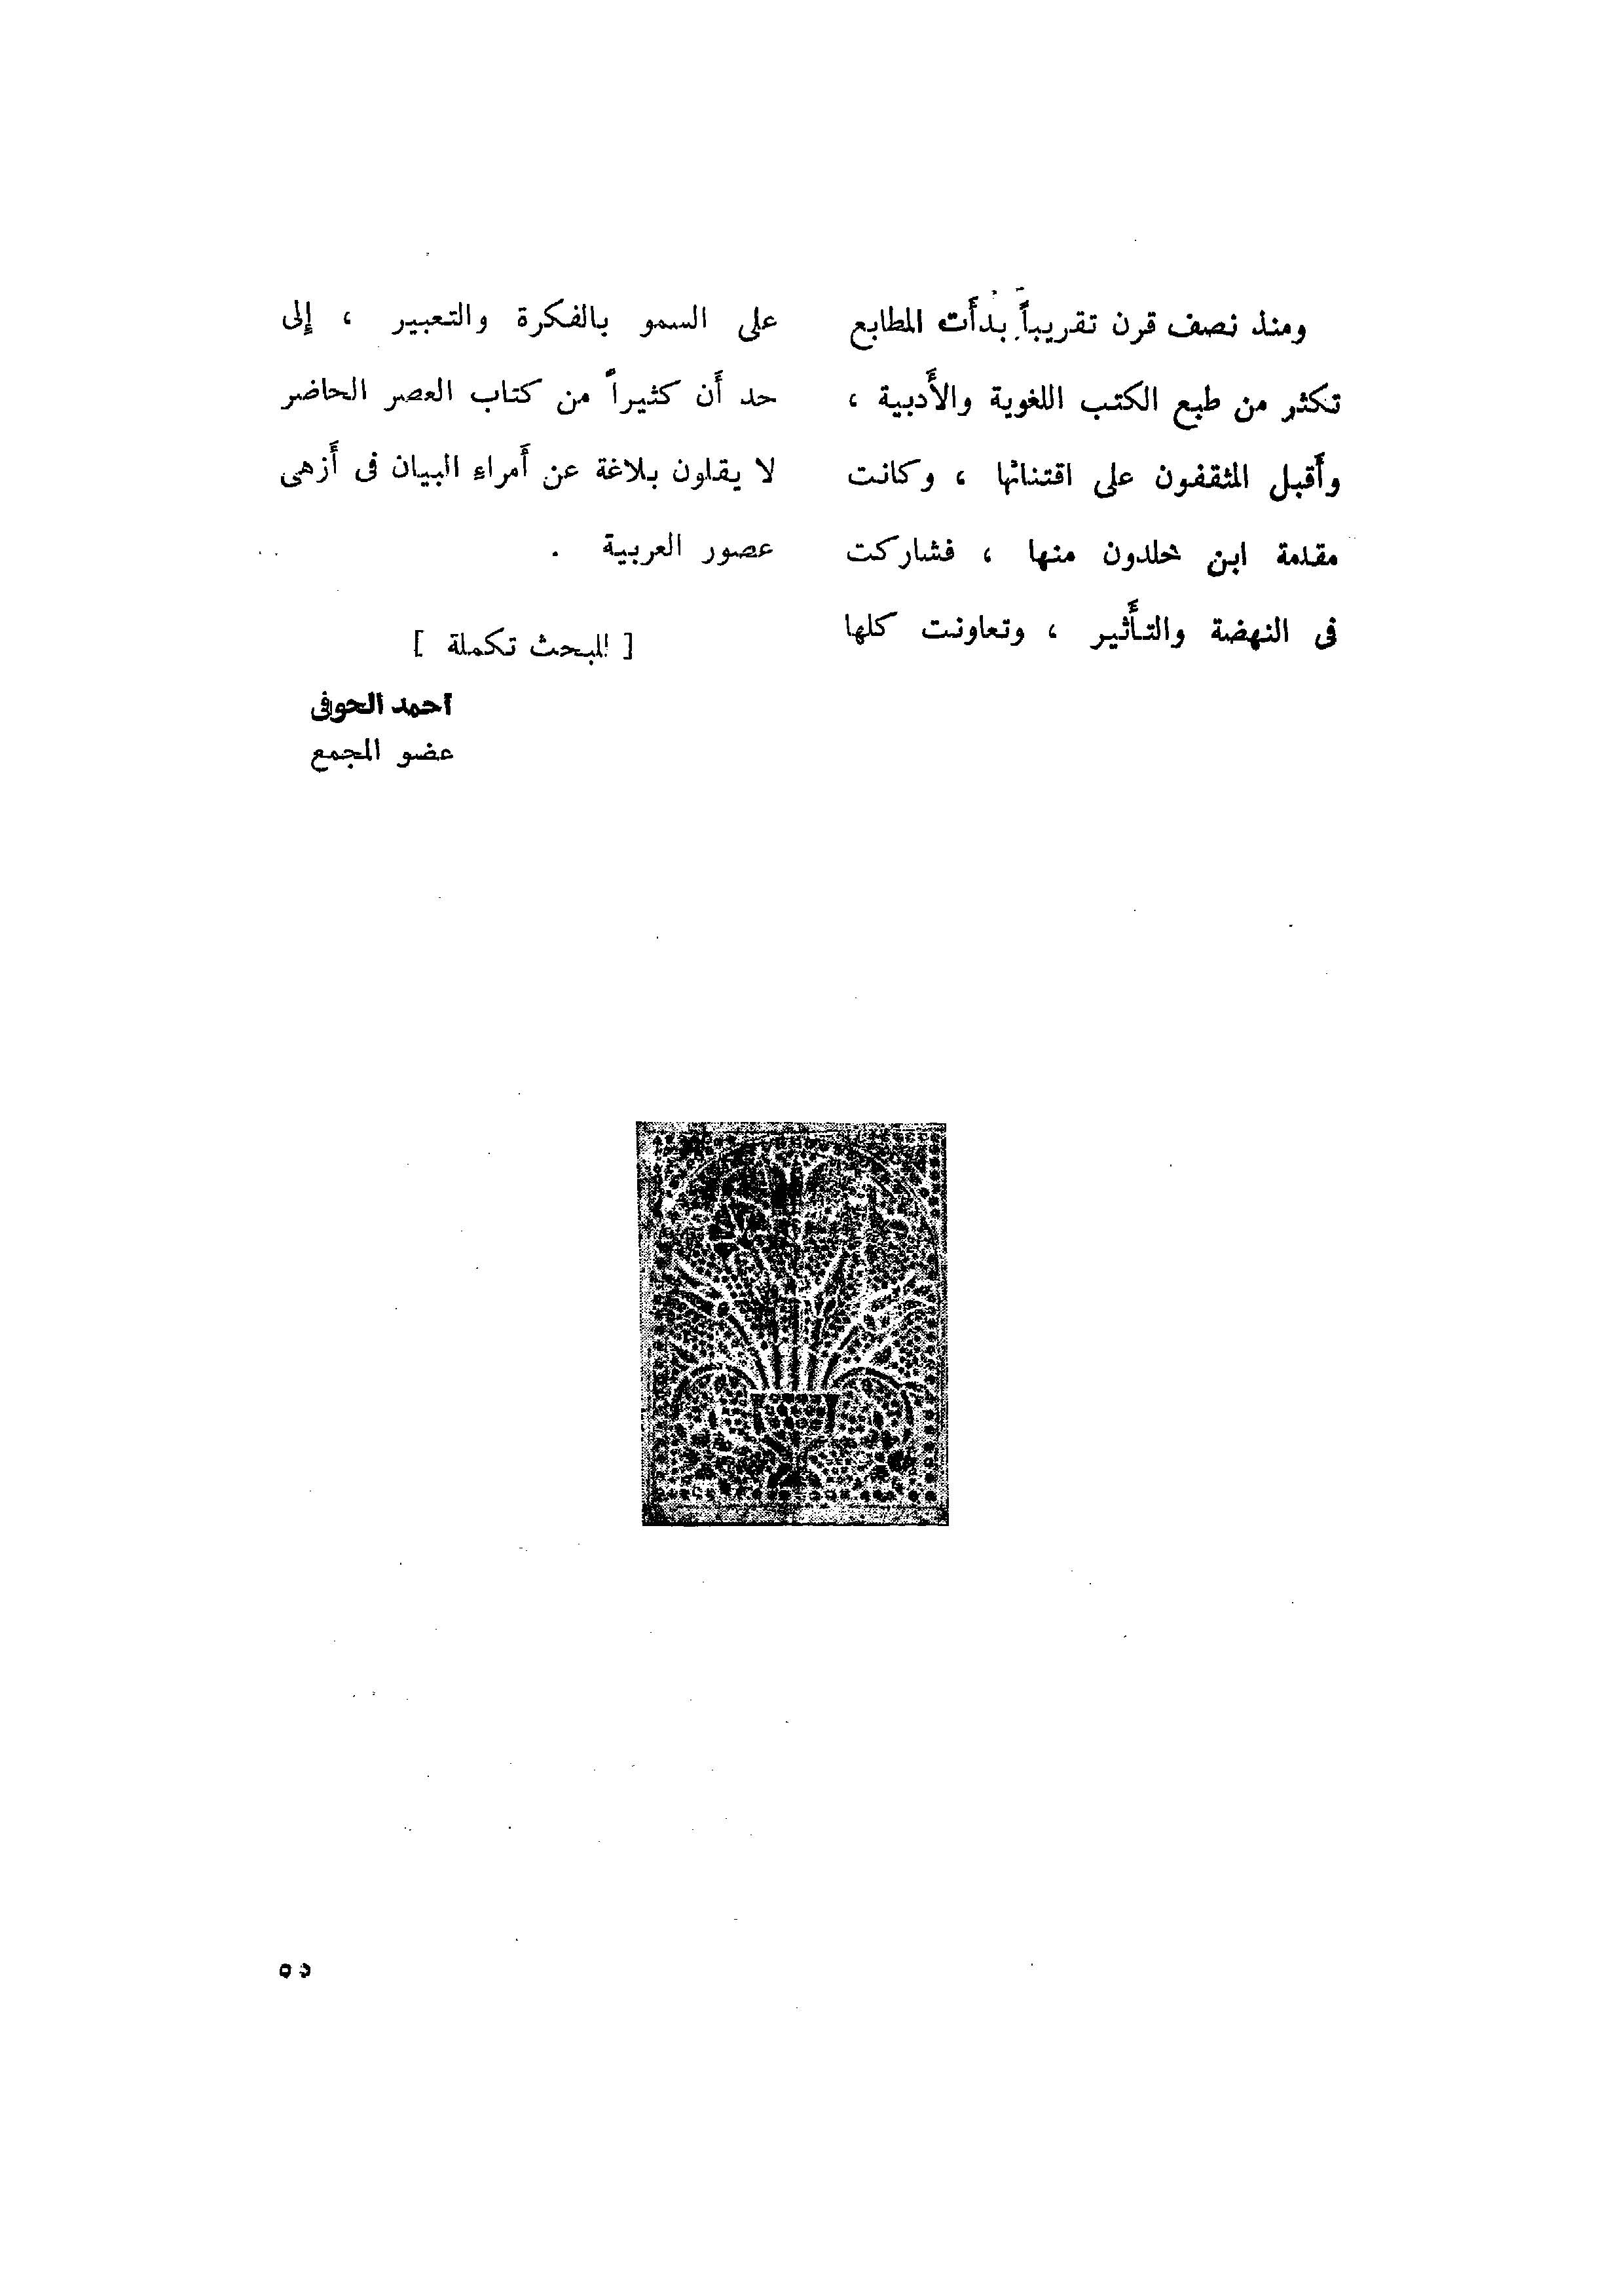 ومنذ نصف قرن تقريباً بدأَت المطابع
تكثر من طبع الكتب اللغوية والأَدبية ،
وأَقبل المثقفون على اقتنائها ، وكانت
مقدمة ابن خلدون منها ، فشاركت
فى النهضة والتأَثير ، وتعاونت كلها
على السمو بالفكرة والتعبير ، إلى
حد أَن كثيراً من كتاب العصر الحاضر
لا يقلون بلاغة عن أَمراء البيان فى أَزهى
عصور العربية .
[ للبحث تكملة ]
احمد الحوفى
عضو المجمع
٥٥